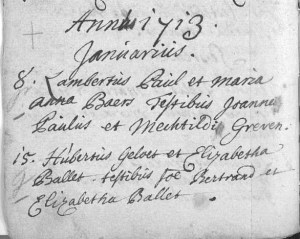 Anni 1713.
Januarius.
8. Lambertus Paul et maria
anna Baers testibus Joannes
Paulus et Mechtildis Greven.
15. Hubertus Geloet et Elizabetha
Ballet testibus Joe Bertrand et
Elizabetha Ballet.